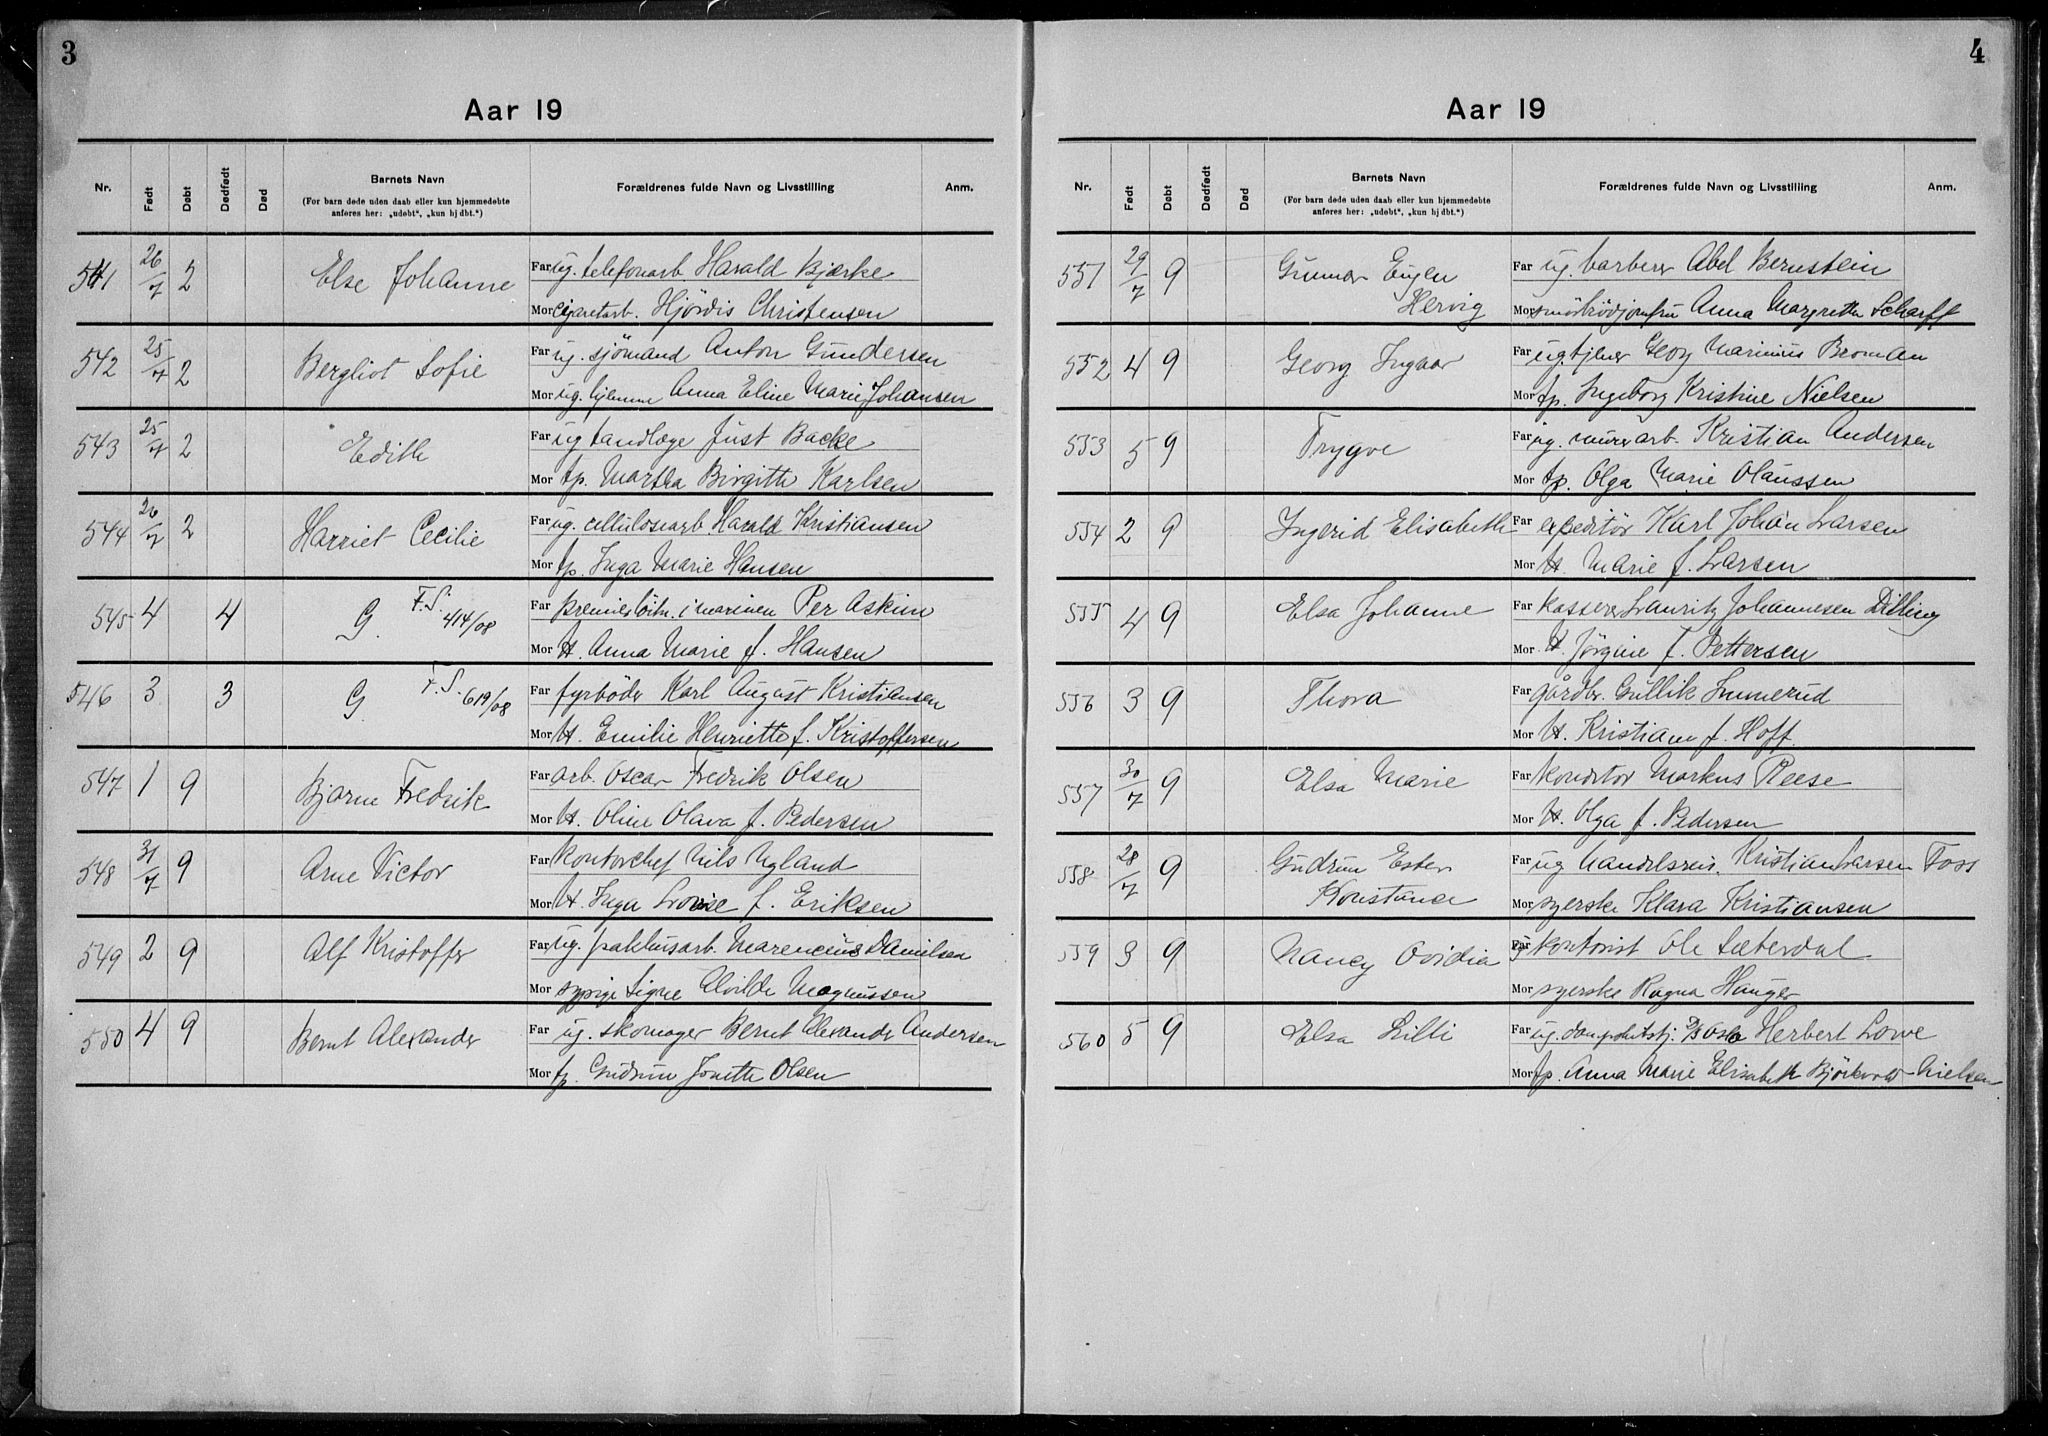 3
Aar 19
Nr. Født Døbt Dødfødt Død Barnets Navn Forældrenes fulde Navn og Livsstilling Anm.
(For barn døde uden daab eller kun hjemmedøbte
anføres her: „udøbt“, „kun hj dbt.“)
541 26/7 2 Else Johanne Far ug. telefonarb. Harald Bjærke
Mor cigaretarb. Hjørdis Christensen
542 25/7 2 Bergliot Sofie Far ug. sjömand Anton Gundersen
Mor ug. hjemme Anna Eline Marie Johansen
543 25/7 2 Edith Far ug tandlæge Just Backe
Mor tp. Martha Birgitte Karlsen
544 26/7 2 Harriet Cecilie Far ug. cellulosearb. Harald Kristiansen
Mor tp. Inga Marie Hansen
545 4 4 G. F.S. 414/08 Far premierløitn. i marinen Per Askim
Mor H. Anna Marie f. Hansen
546 3 3 G F.S. 619/08 Far fyrbøder Karl August Kristiansen
Mor H. Emilie Henriette f. Kristoffersen
547 1 9 Bjarne Fredrik Far arb. Oscar Fredrik Olsen
Mor H. Oline Olava f. Pedersen
548 31/7 9 Arne Victor Far kontorchef Nils Ugland
Mor H. Inga Lovise f. Eriksen
549 2 9 Alf Kristoffer Far ug. pakhusarb. Marencius Danielsen
Mor sypige Signe Alvilde Magnussen
550 4 9 Bernt Alexander Far ug. skomager Bernt Alexander Andersen
Mor tp. Gudrun Josette Olsen
4
Aar 19
Nr. Født Døbt Dødfødt Død Barnets Navn Forældrenes fulde Navn og Livsstilling Anm.
(For barn døde uden daab eller kun hjemmedøbte
anføres her: „udøbt“, „kun hj dbt.“)
551 29/7 9 Gunnar Eugen Far ug. barberer Abel Bernstein
Hervig Mor smörbrödjomfru Anna Margrethe Scharff
552 4 9 Georg Ingvar Far ug. tjener Georg Marinius Broman
Mor tp. Ingeborg Kristine Nielsen
553 5 9 Trygve Far ug. murerarb. Kristian Andersen
Mor tp. Olga Marie Olaussen
554 2 9 Ingerid Elisabeth Far expeditör Karl Johan Larsen
Mor H. Marie f. Larsen
555 4 9 Elsa Johanne Far kasserer Lauritz Johannesen Dilling
Mor H. Jørgine f. Pettersen
556 3 9 Thora Far gårdbr. Gullik Immerud
Mor H. Kristiane f. Hoff.
557 30/7 9 Elsa Marie Far konditor Markus Reese
Mor H. Olga f. Pedersen
558 28/7 9 Gudrun Ester Far ug handelsreis. Kristian Larsen Foss
Konstance Mor syerske Klara Kristiansen
559 3 9 Nancy Ovidia Far kontorist Ole Sæterdal
Mor syerske Ragna Hauger
560 5 9 Elsa Lilli Far ug. D/S Oslo Herbert Lowe
Mor tp. Anna Marie Elisabeth Björkvold-Nielsen